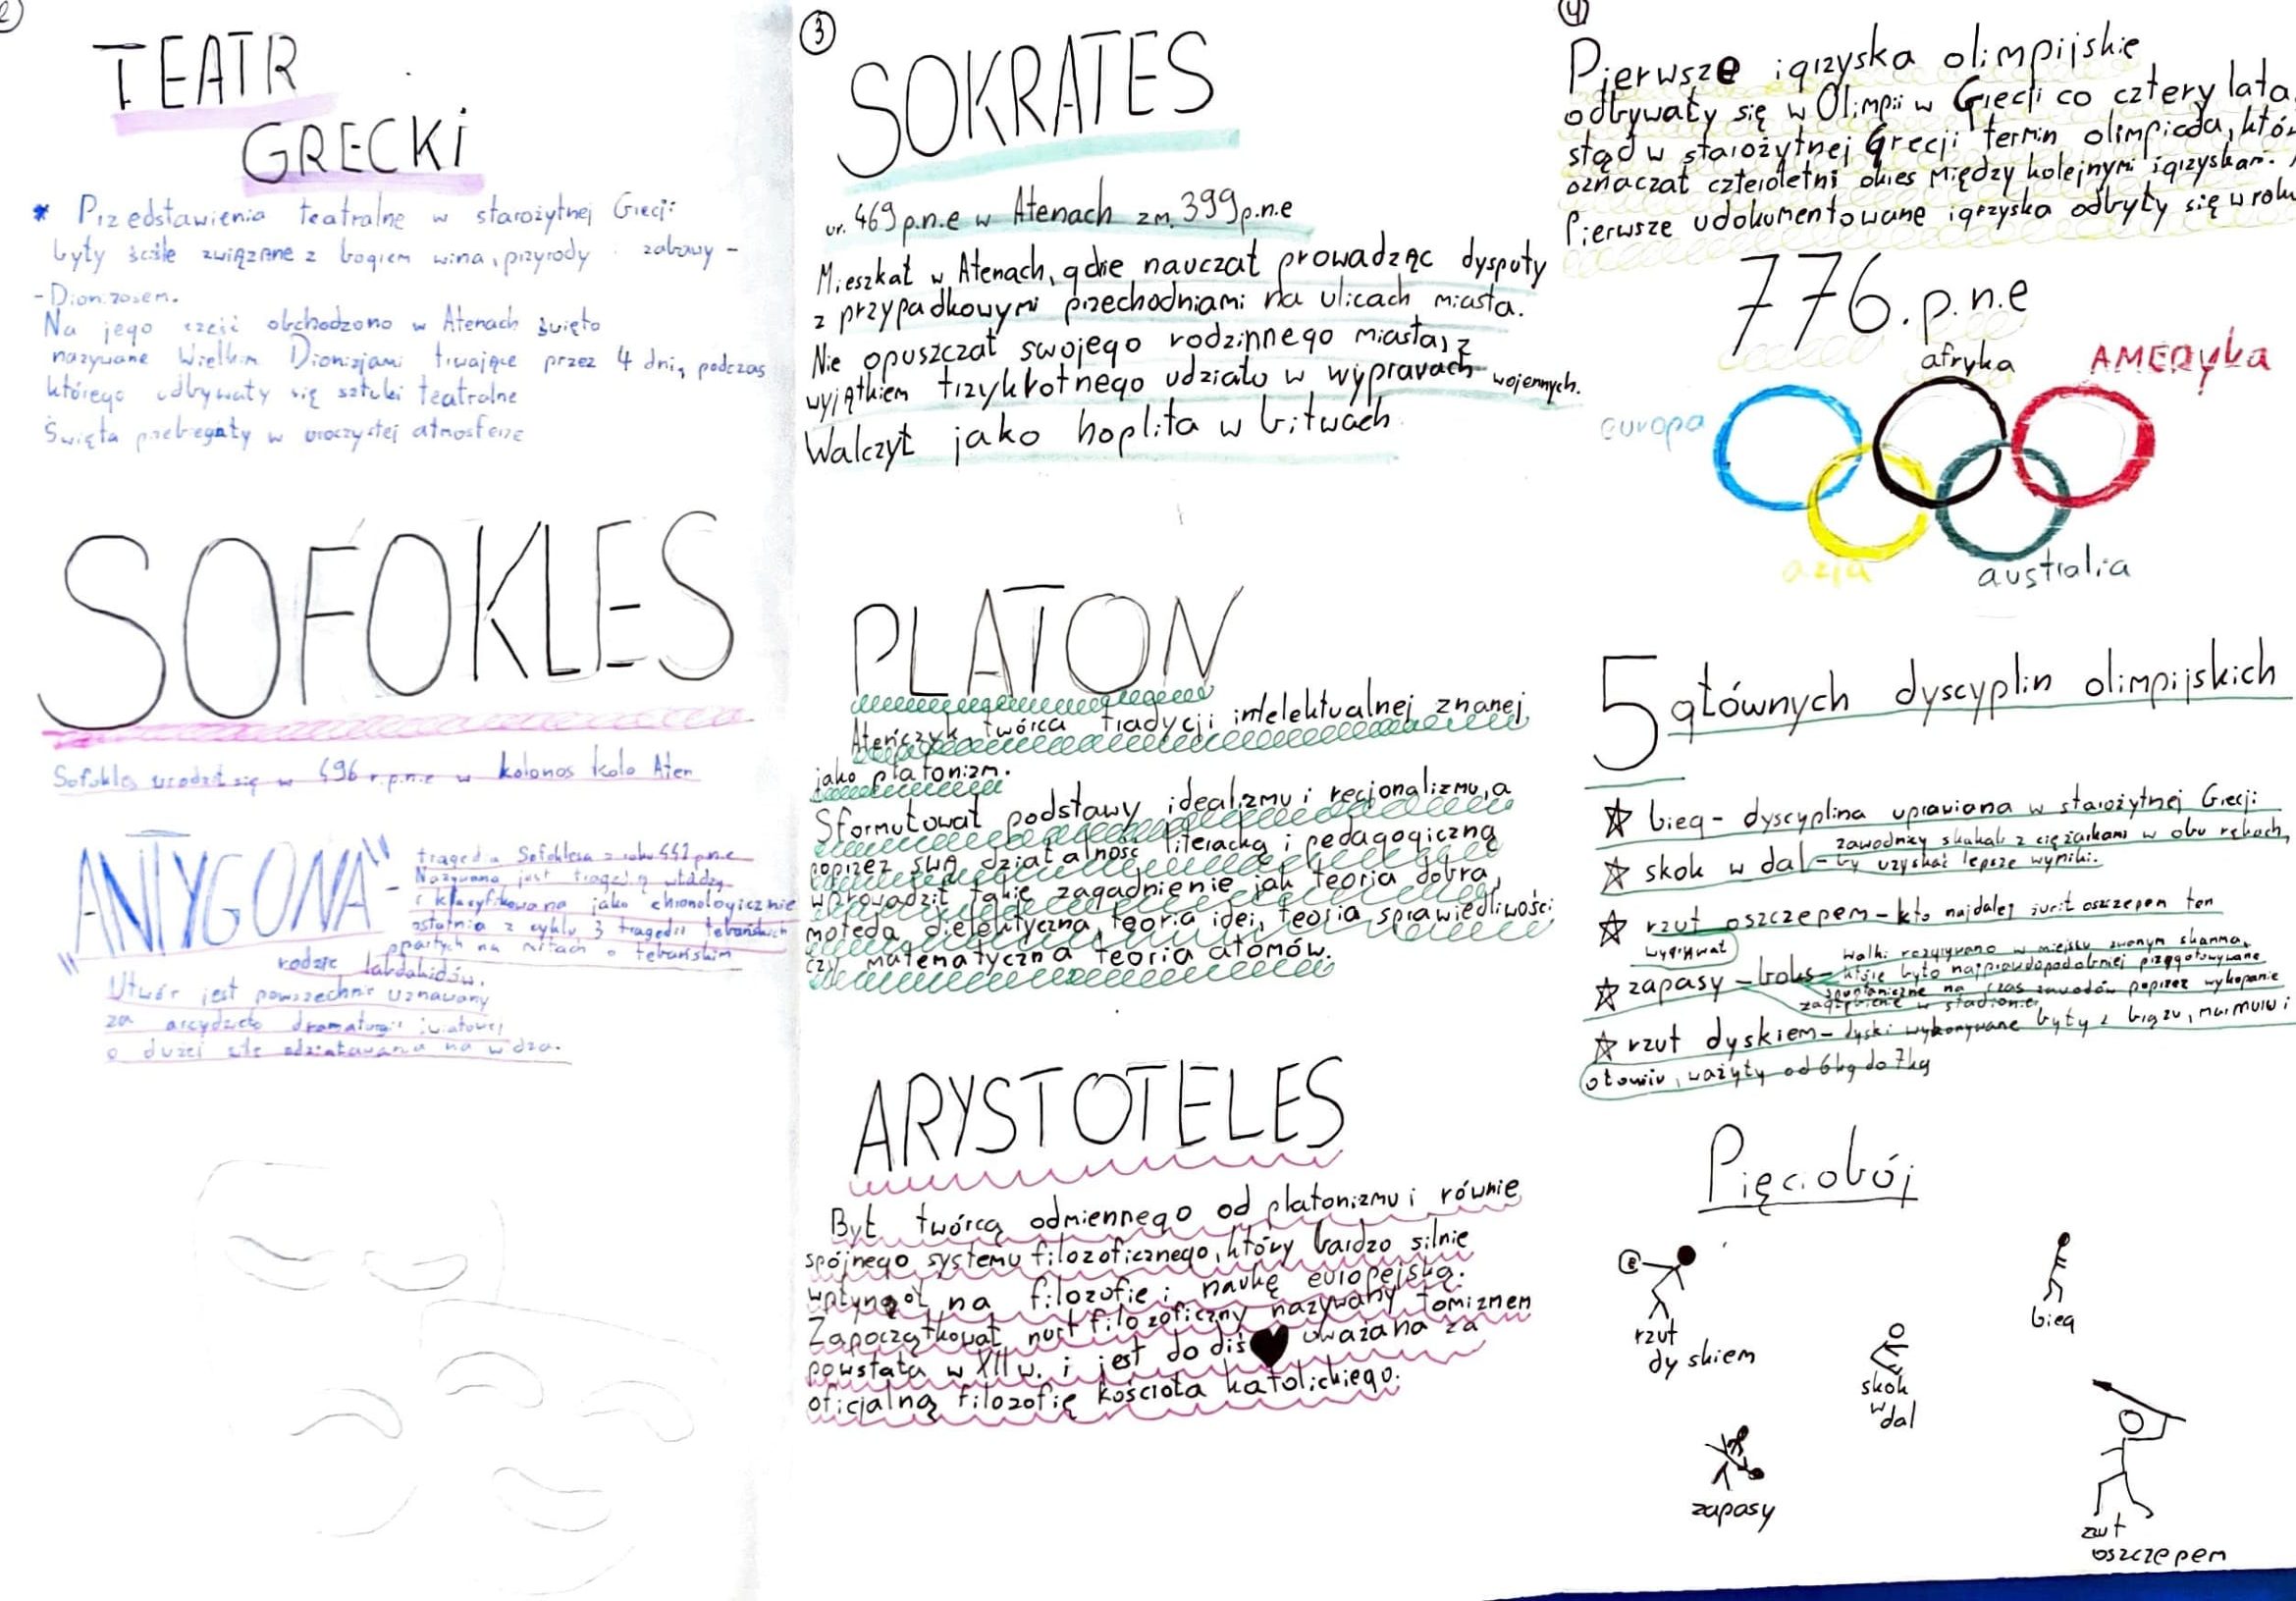 TEATR
GRECKI
* Przedstawienia teatralne w starożytnej Grecji
były ściśle związane z bogiem wina, przyrody i zabawy -
- Dionizosem.
Na jego cześć obchodzono w Atenach święto
nazywane Wielkim Dionizjami trwające przez 4 dni, podczas
którego odbywały się sztuki teatralne
Święta przebiegały w uroczystej atmosferze
SOFOKLES
Sofokles urodził się w 496 r.p.n.e w kolonos koło Aten
"ANTYGONA" -
tragedia Sofoklesa z roku p.n.e
Nazywana jest tragedią władzy
i klasyfikowana jako chronologicznie
ostatnia z cyklu 3 tragedii tebańskich
opartych na mitach o tebańskim
rodzie labdakidów.
Utwór jest powszechnie uznawany
za arcydzieło dramaturgii światowej
o dużej sile odziaływania na widza.
3
SOKRATES
ur. 469 p.n.e w Atenach zm. 399 p.n.e
Mieszkał w Atenach, gdzie nauczał prowadząc dysputy
z przypadkowymi przechodniami na ulicach miasta.
Nie opuszczał swojego rodzinnego miasta, z
wyjątkiem trzykrotnego udziału w wyprawach wojennych.
Walczył jako hoplita w bitwach.
PLATON
Ateńczyk, twórca tradycji intelektualnej znanej
jako platonizm.
Sformułował podstawy idealizmu i racjonalizmu, a
poprzez swą działalność literacką i pedagogiczną
wprowadził takie zagadnienie jak teoria dobra,
moteda dielektyczna, teoria idei, teoria sprawiedliwości
czy matematyczna teoria atomów.
ARYSTOTELES
Był twórcą odmiennego od platonizmu i równie
spójnego systemu filozoficznego, który bardzo silnie
wpłynął na filozofię i naukę europejską.
Zapoczątkował nurt filozoficzny nazywany tomizmem
powstała w XII w. i jest do diś uważana za
oficjalną filozofię kościoła katolickiego.
4
Pierwsze igrzyska olimpijskie
odbywały się w Olimpii w Grecji co cztery lata,
stąd w starożytnej Grecji termin olimpiada, któr
oznaczał czteroletni okres między kolejnymi igrzyskami.
Pierwsze udokumentowane igrzyska odbyły się w roku
776.p.n.e
afryka
AMERyka
europa
azja
australia
5 głównych dyscyplin olimpijskich
☆ bieg - dyscyplina uprawiana w starożytnej Grecji
zawodnicy skakali z ciężarkami w obu rękach,
☆ skok w dal - by uzyskać lepsze wyniki.
☆ rzut oszczepem - kto najdalej rzucił oszczepem ten
wygrywał
Walki rozgrywano w miejscu zwanym skamma,
☆ zapasy - boks - które było najprawdopodobniej przygotowywane
spontaniczne na czas zawodów poprzez wykopanie
zagłębienie w stadionie
☆ rzut dyskiem - dyski wykonywane były z brązu, marmuru i
ołowiu, ważyły od 6kg do 7kg
Pięciobój
rzut
dyskiem
bieg
skok
w
dal
zapasy
rzut
oszczepem